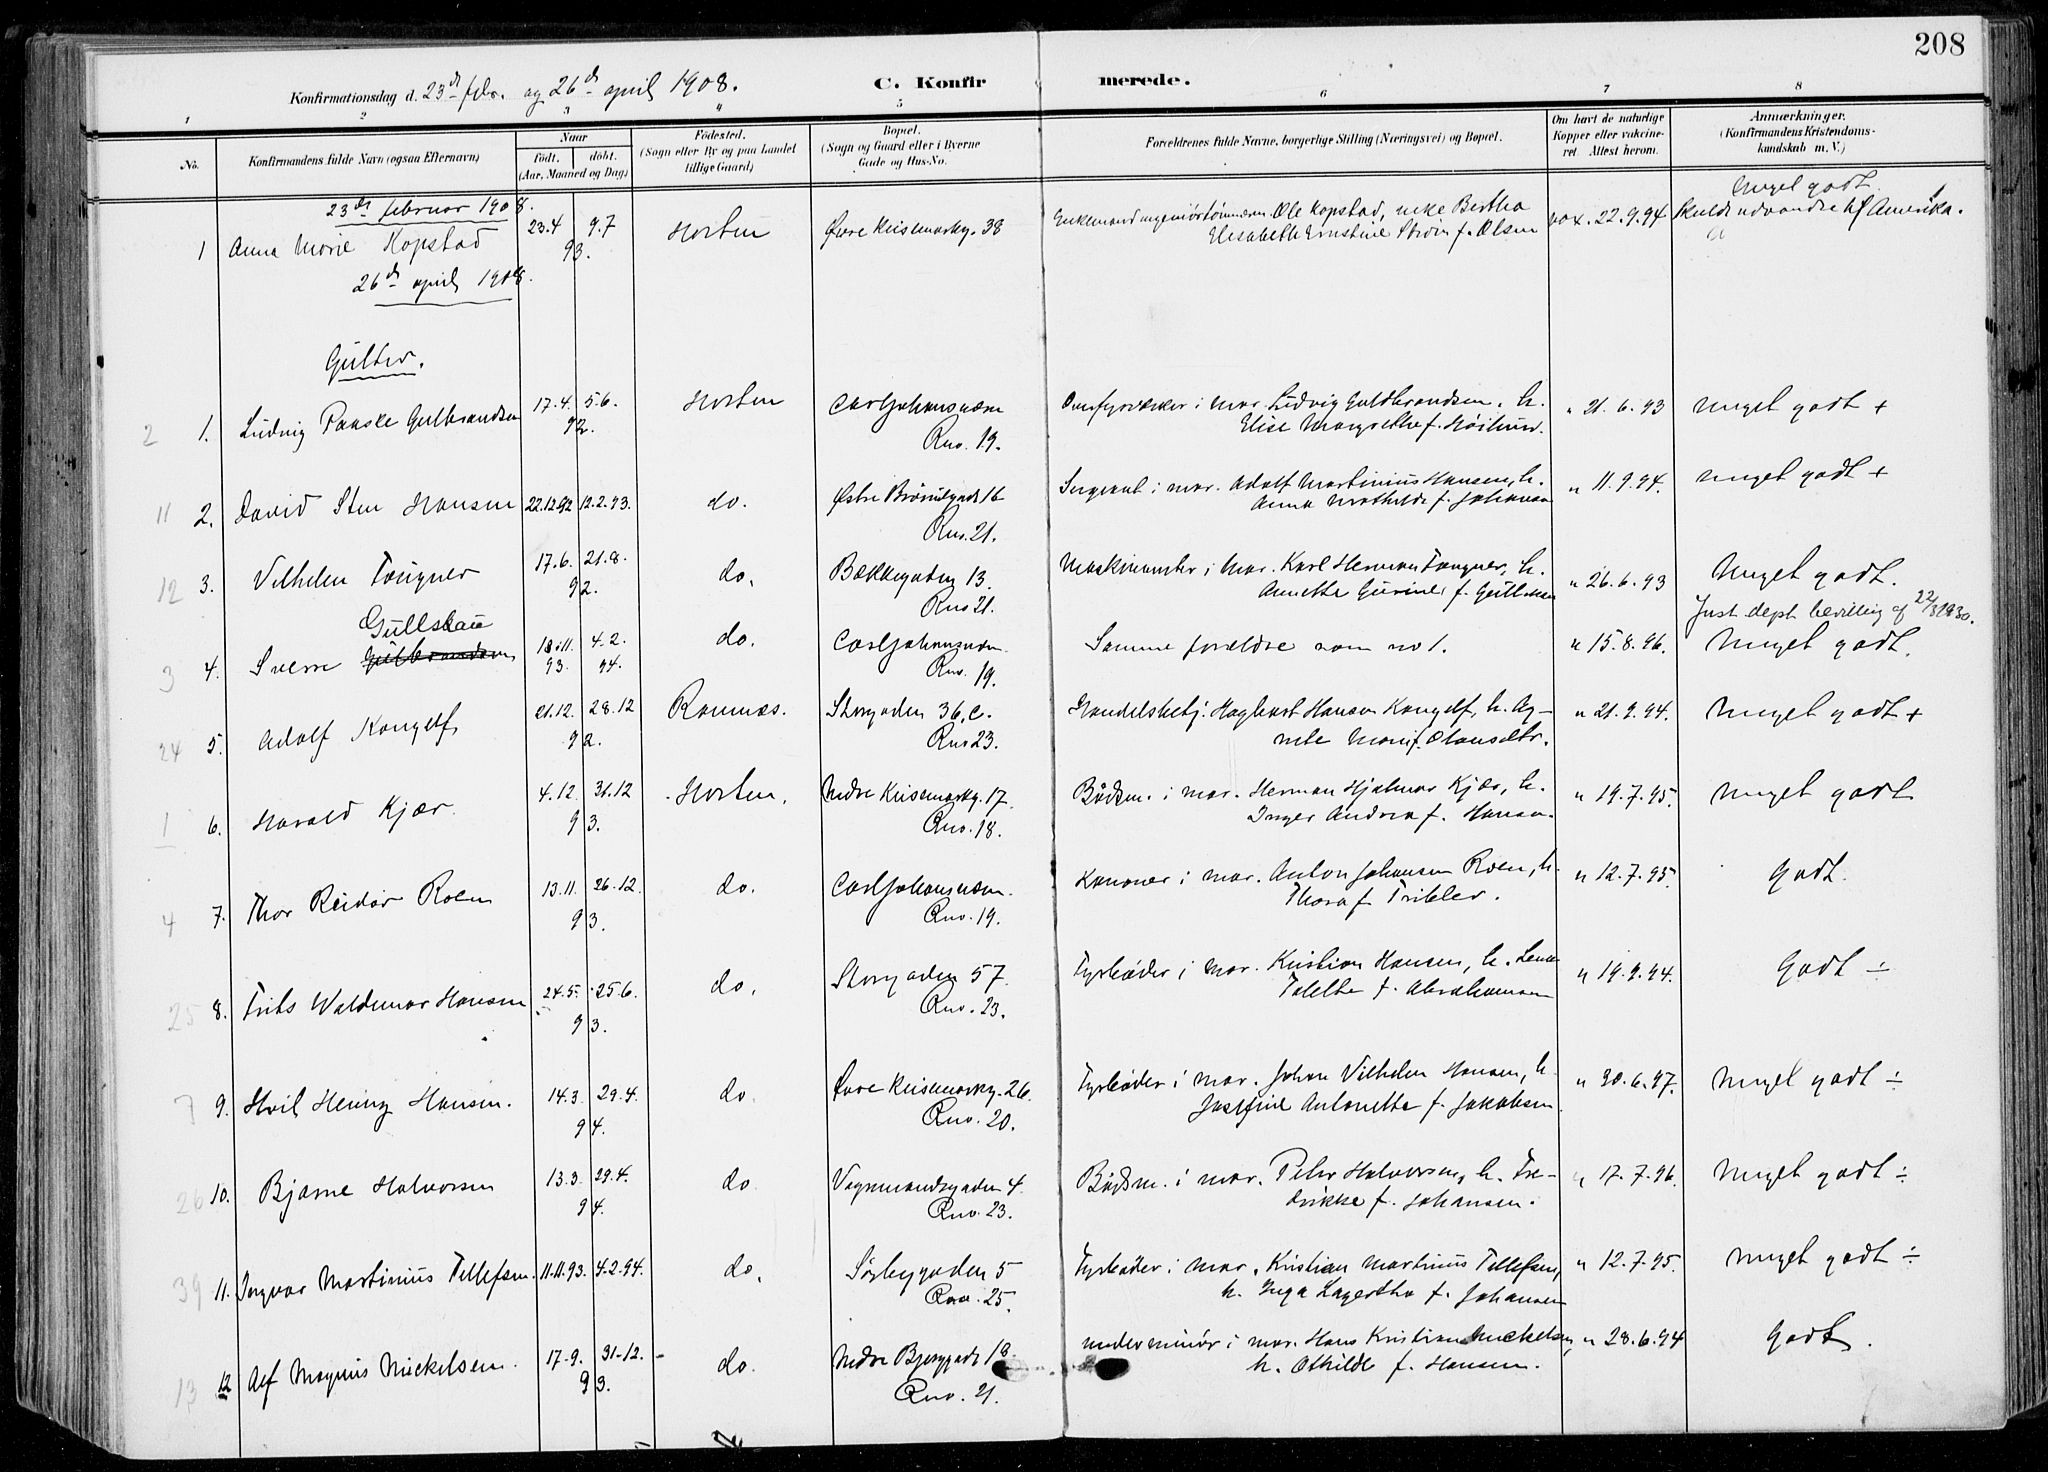 208
Konfirmationsdag d. 23de febr. og 26de april 1908.
C. Konfirmerede.
1 2 3 4 5 6 7 8
No.
Konfirmandens fulde Navn (ogsaa Efternavn)
Naar
født. døbt.
(Aar, Maaned og Dag)
Fødested.
(Sogn eller By og paa Landet
tillige Gaard)
Bopæl.
(Sogn og Gaard eller i Byerne
Gade og Hus-No.
Forældrenes fulde Navne, borgerlige Stilling (Næringsvei) og Bopæl.
Om havt de naturlige
Kopper eller vakcine-
ret. Attest herom.
Anmærkninger.
(Konfirmandens Kristendoms-
kundskab m. V.)
23de februar 1908.
1 Anna Marie Kopstad 23.4 9.7 93. Horten Øvre Keisemarkg. 38
Ole Kopstad, Bertha
Elisabeth Ernstine f. Olsen
vax. 22.9.94
Meget godt.
Skulde udvandre til Amerika.
26de april 1908.
Gutter.
2 1. Ludvig Paaske Gulbrandsen 17.4. 5.6. 92. Horten Carljohansvæern
Rno. 19.
i mar. Ludvig Guldbrandsen, h.
Elise Margrethe f. Høilund.
" 21.6.93 Meget godt +
11 2. David Sten Hansen 22.12.92 12.2.93. do. Østre Braarudgade 16
Rno. 21.
Sergeant i mar. Adolf Martinius Hansen, h.
Anna Mathilde f. Johansen
" 11.9.94. Meget godt +
12 3. Vilhelm Taugner 17.6. 21.8. 92. do. Bakkegaden 13.
Rno 21.
i mar. Karl Herman Taugner, h.
Annette Gurine f.
" 26.6.93 Meget godt.
Just. dept. bevilling af 22/3 1930.
3 4. Sverre Gulbrandsen Gullstau 18.11. 93. 4.2. 94. do. Carljohansværn
Rno. 19.
Samme forældre som no 1.
" 15.8.96. Meget godt.
24 5. Adolf Kongelf 21.12. 28.12 92. Ramnæs. Storgaden 36, c.
Rno 23.
Handelsbetj. Hagbart Hansen Kongelf, h. Ag-
nete Marie f. Olausdtr.
" 21.9.94. Meget godt +
1 6. Harald Kjær. 4.12. 31.12 93. Horten. Nedre Keisemarkg. 17.
Rno. 18.
Bådsm. i mar. Herman Hjalmar Kjær, h.
Inger Andrea f. Hansen.
" 19.7.95. Meget godt
4 7. Thor Reidar Roen 13.11. 26.12. 93. do. Carljohansværn.
Rno. 19.
Kanoner i mar. Anton Johansen Roen, h.
Thora f. Tribler.
" 12.7.95. Godt.
25 8. Frits Waldemar Hansen 24.5. 25.6. 93. do. Storgaden 57.
Rno. 23.
Fyrbøder i mar. Kristian Hansen, h. Lene
Talette f. Abrahamsen
" 19.9.94. Godt ÷
7 9. Henry Hansen. 14.3. 29.4. 94. do. Øvre Keisemarkg. 26.
Rno. 20.
Fyrbøder i mar. Johan Vilhelm Hansen, h.
Josefine Antonette f. Jakobsen.
" 30.6.97. Meget godt ÷
26 10. Bjarne Halvorsen 13.3. 29.4. 94. do. Vognmandsgaden 4.
Rno. 23.
Bådsm. i mar. Peter Halvorsen, h. Fre-
drikke f. Johansen.
" 17.7.96. Meget godt ÷
39 11. Ingvar Martinius Tellefsen. 11.11.93. 4.2.94. do. Sørbygaden 5
Rno. 25.
Fyrbøder i mar. Kristian Martinius Tellefsen,
h. Inga Lagertha f. Johansen
" 12.7.95. Meget godt ÷
13 12 Alf Magnus Mickelsen. 17.9. 31.12. 93. do. Nedre Bjerggade 18.
Rno. 21.
underminør i mar. Hans Kristian Mickelsen,
h. Othilde f. Hansen.
" 28.6.94 Godt.